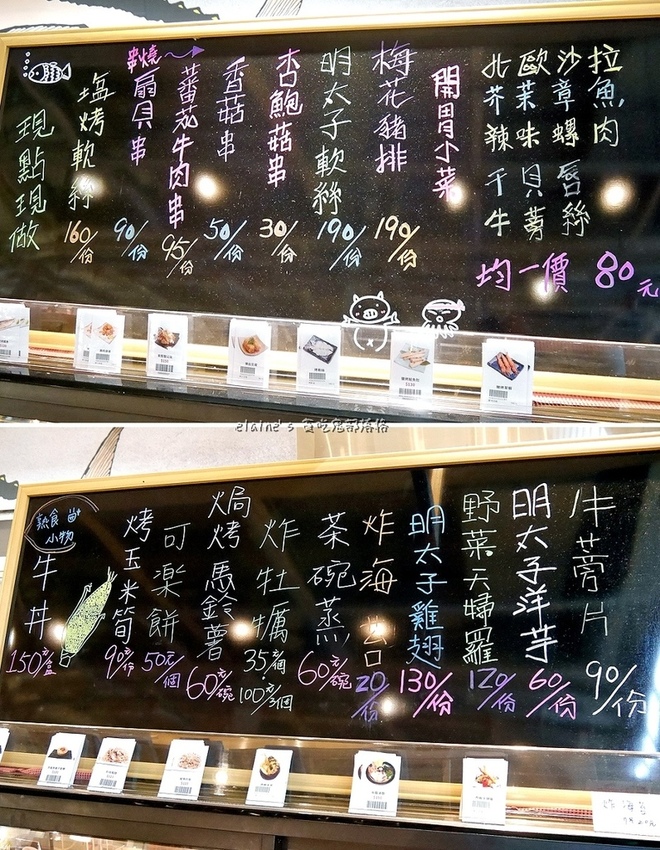 拉魚肉
沙章螺唇絲
歐萊味貝蒡
北芥辣干牛
均一價 80元
開胃小菜
梅花豬排 190/份
明太子軟絲 190/份
杏鮑菇串 30/份
香菇串 50/份
蕃茄牛肉串 95/份
串燒
扇貝串 90/份
塩烤軟絲 160/份
現點現做
elaine's 貪吃鬼部落格
牛蒡片 90/份
明太子洋芋 60/份
野菜天婦羅 120/份
明太子雞翅 130/份
炸海苔 20/份
茶碗蒸 60元/碗
炸牡犡 35元/個 100元/3個
焗烤馬鈴薯 60元/碗
可樂餅 50元/個
烤玉米筍 90元/份
熟食
小物
牛丼 150元/盒